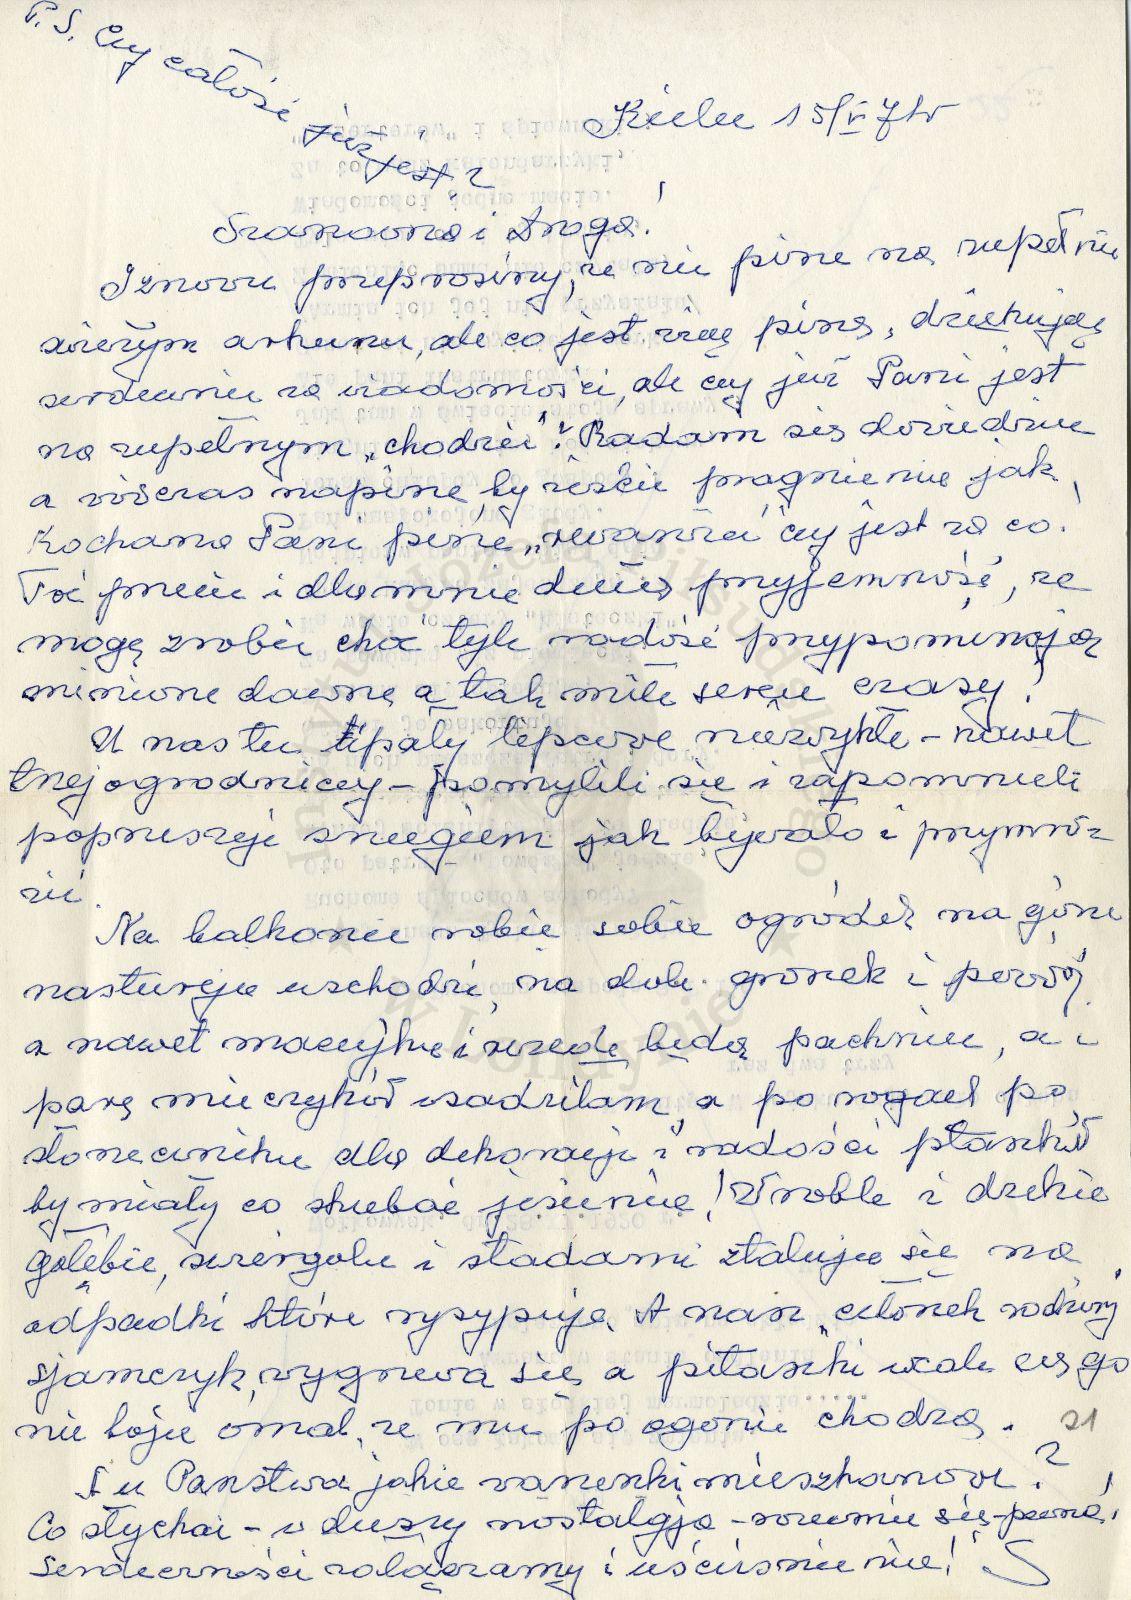 P.S. Czy całość już jest?
Kielce 15/V 71r
Szanowna i Droga!
Znowu przeprosiny, że nie piszę na zupełnie
świeżym arkuszu, ale co jest więc piszę, dziękując
serdecznie za wiadomości, ale czy już Pani jest
na zupełnym „chodzie"? Radam się dowiedzieć
a wówczas napiszę by ziścić pragnienie jak
Kochana Pani pisze „rewanżu" czy jest za co!
Toć przecie i dla mnie dużą przyjemność, że
mogę zrobić choć tyle radość przypominając
minione dawne a tak miłe sercu czasy!
U nas tu upały lipcowe niezwykłe – nawet
trzej ogrodnicy – pomylili się i zapomnieli
poprószyć śniegiem jak bywało i przymro-
zić.
Na balkonie robię sobie ogródek na górze
nasturcje uschodzi, na dole groszek i powój
a nawet maciejkę i rezedę będą pachnieć, a i
parę mieczyków wsadziłam, a po rogach po
słoneczniku dla dekoracji i radości ptaków
by miały co skubać jesienią! Wróble i dzikie
gołębie, szczególnie i stadami zlatują się na
odpadki które wysypuję. A nasz „członek rodziny"
sjamczyk, wygrzewa się a ptaszki wcale się go
nie boją omal, że mu po ogonie chodzą.
21
A u Państwa jakie warunki mieszkaniowe?
Co słychać – w duszy nostalgja – rozumie się – pewnie!
Serdeczności załączamy i uściśnienie! S
Instytut Józefa Piłsudskiego
w Londynie